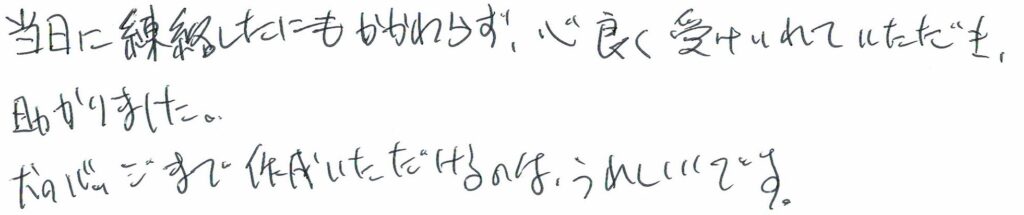 当日に練絡したにもかかわらず、心良く受け入れていただき、
助かりました。
犬のバッジまで作成いただけるのは、うれしいです。